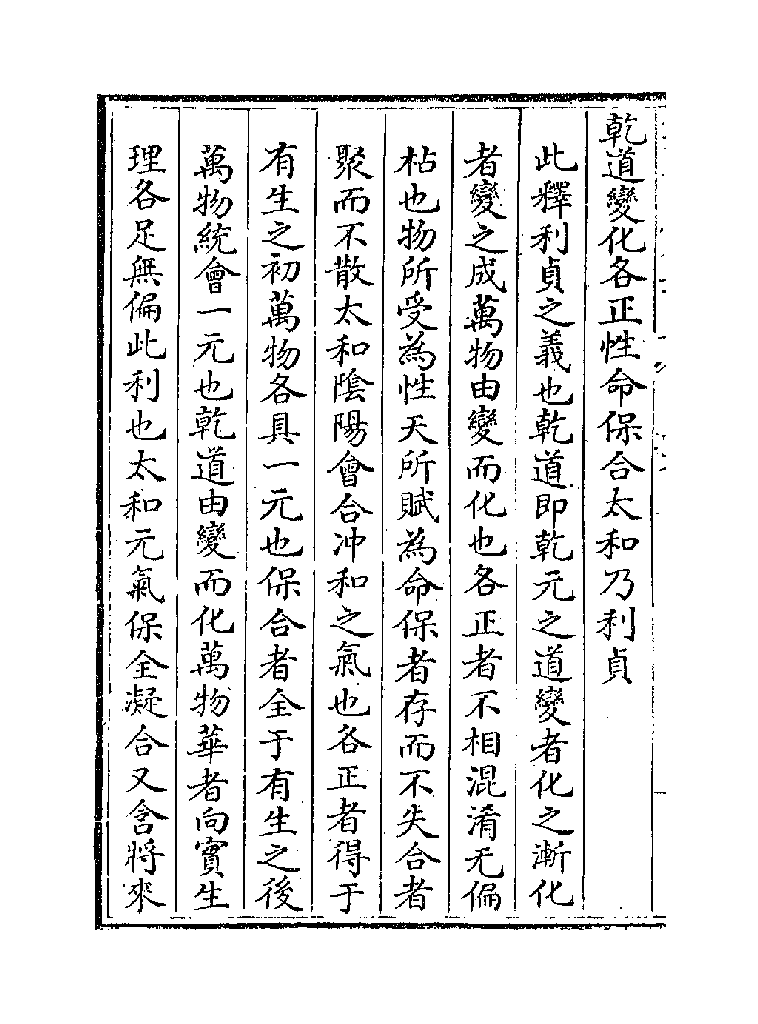 乾道變化各正性命保合太和乃利貞
此釋利貞之義也乾道即乾元之道變者化之漸化
者變之成萬物由變而化也各正者不相混淆无偏
枯也物所受為性天所賦為命保者存而不失合者
聚而不散太和陰陽會合冲和之氣也各正者得于
有生之初萬物各具一元也保合者全于有生之後
萬物統會一元也乾道由變而化萬物華者向實生
理各足無偏此利也太和元氣保全凝合又含將來